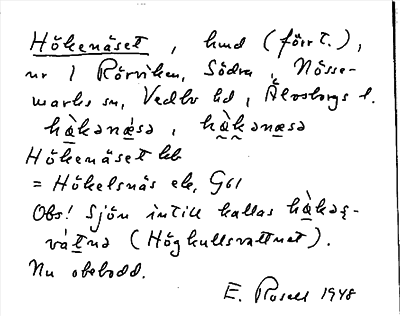 Hökenäset, hmd (förr t.),
nr 1 Rörviken, Södra, Nösse-
marks sn, Vedbo hd, Älvsborgs l.
hàkənásə, hàkənæsə
Hökenäset kb
= Hökelsnäs ek, G61
Obs! Sjön intill kallas hàkəs-
vátnə (Högkullsvattnet).
Nu obebodd.
E. Rosell 1948